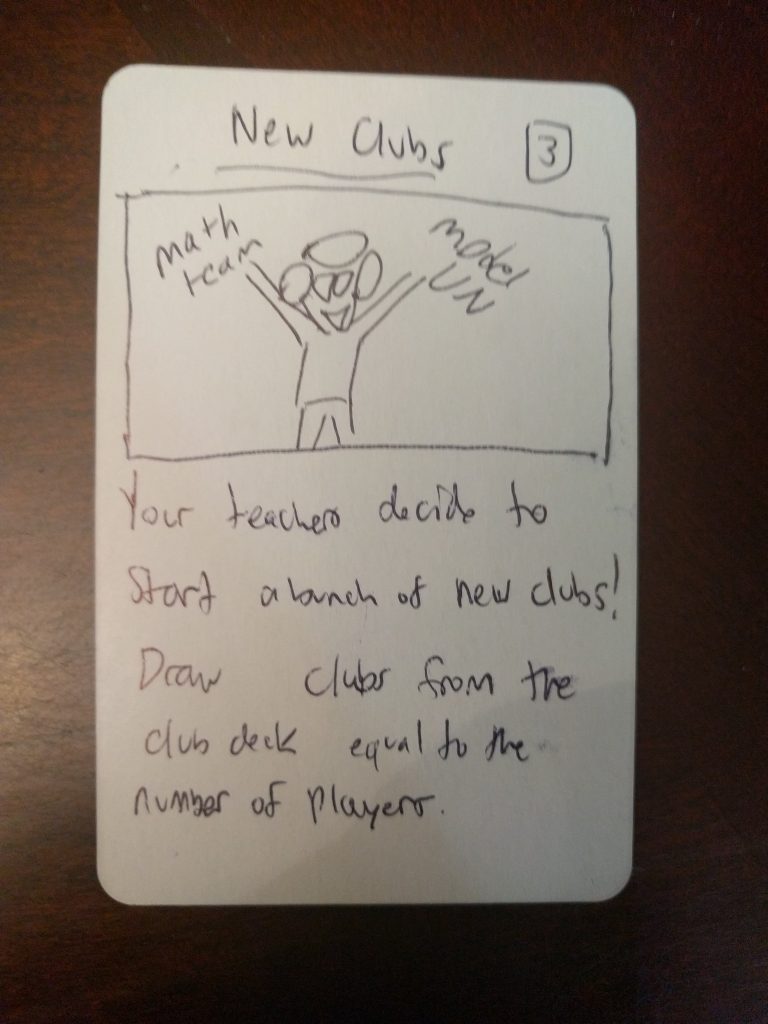 New Clubs 3
math
team
model
UN
Your teachers decide to
Start a bunch of new clubs!
Draw clubs from the
club deck equal to the
number of players.